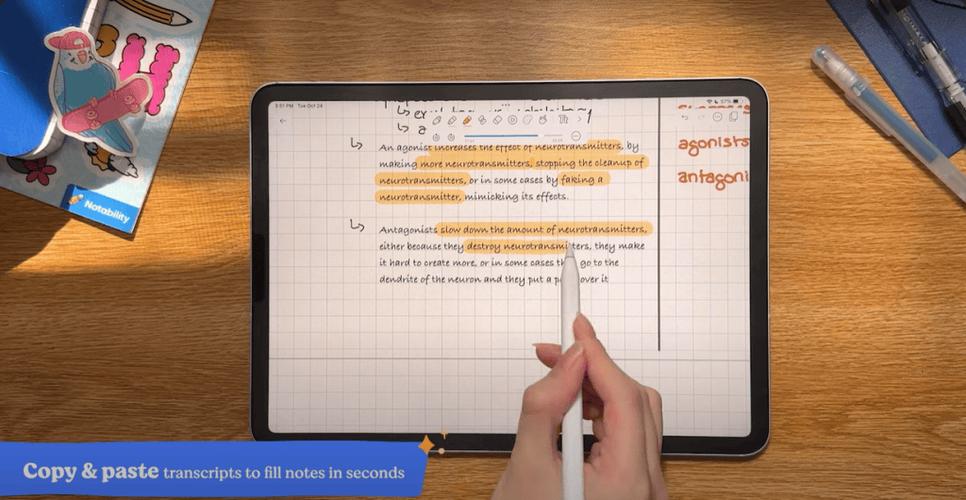 Notability
3:51 PM Tue Oct 24
57%
An agonist increases the effect of neurotransmitters, by
making more neurotransmitters, stopping the cleanup of
neurotransmitters, or in some cases by faking a
neurotransmitter, mimicking its effects.
Antagonists slow down the amount of neurotransmitters,
either because they destroy neurotransmitters, they make
it hard to create more, or in some cases go to the
dendrite of the neuron and they put a over it
agonists
antagoni
Copy & paste transcripts to fill notes in seconds